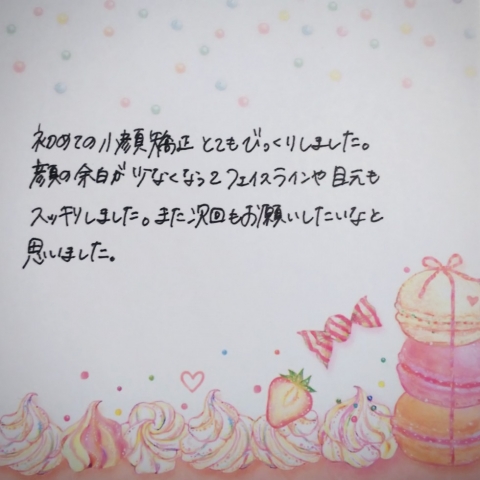 初めての小顔矯正とてもびっくりしました。
顔の余白が少なくなってフェイスラインや目元も
スッキリしました。また次回もお願いしたいなと
思いました。